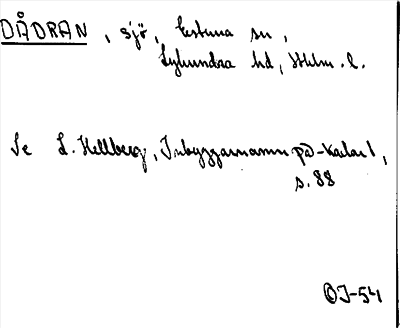 DÅDRAN, sjö, Estuna sn,
Lyhundra hd, Sthlm. l.
Se L. Hellberg, Inbyggarnamn på -karlar,
s. 88
OJ-54